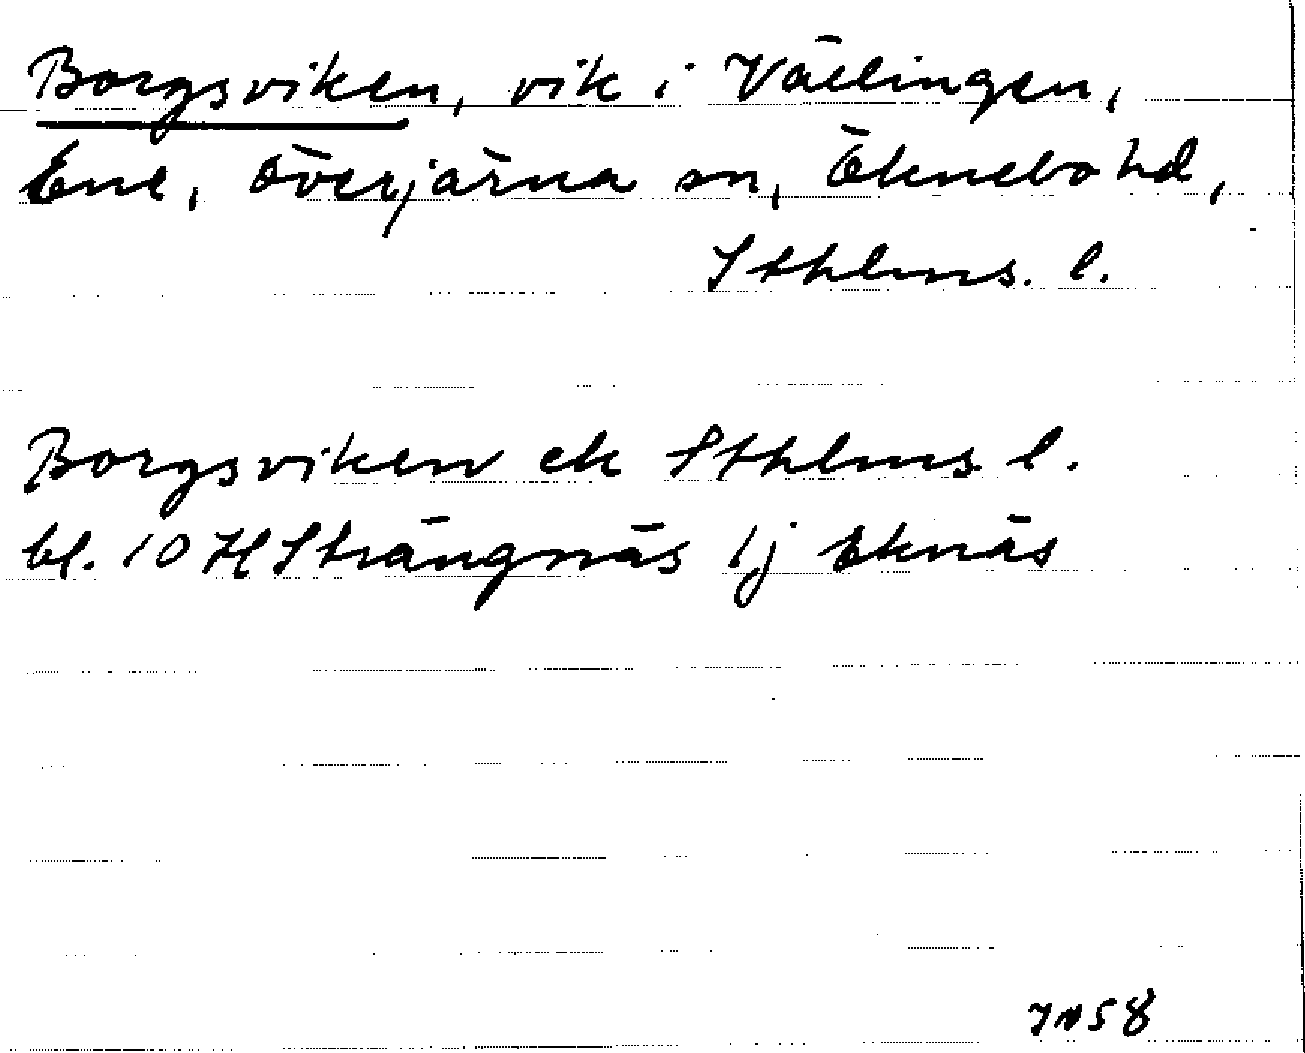 Borgsviken, vik i Vällingen,
Ene, Överjärna sn, Öknebo hd,
Sthlms. l.
Borgsviken ek Sthlms l.
bl. 10 H Strängnäs 1j Eknäs
58